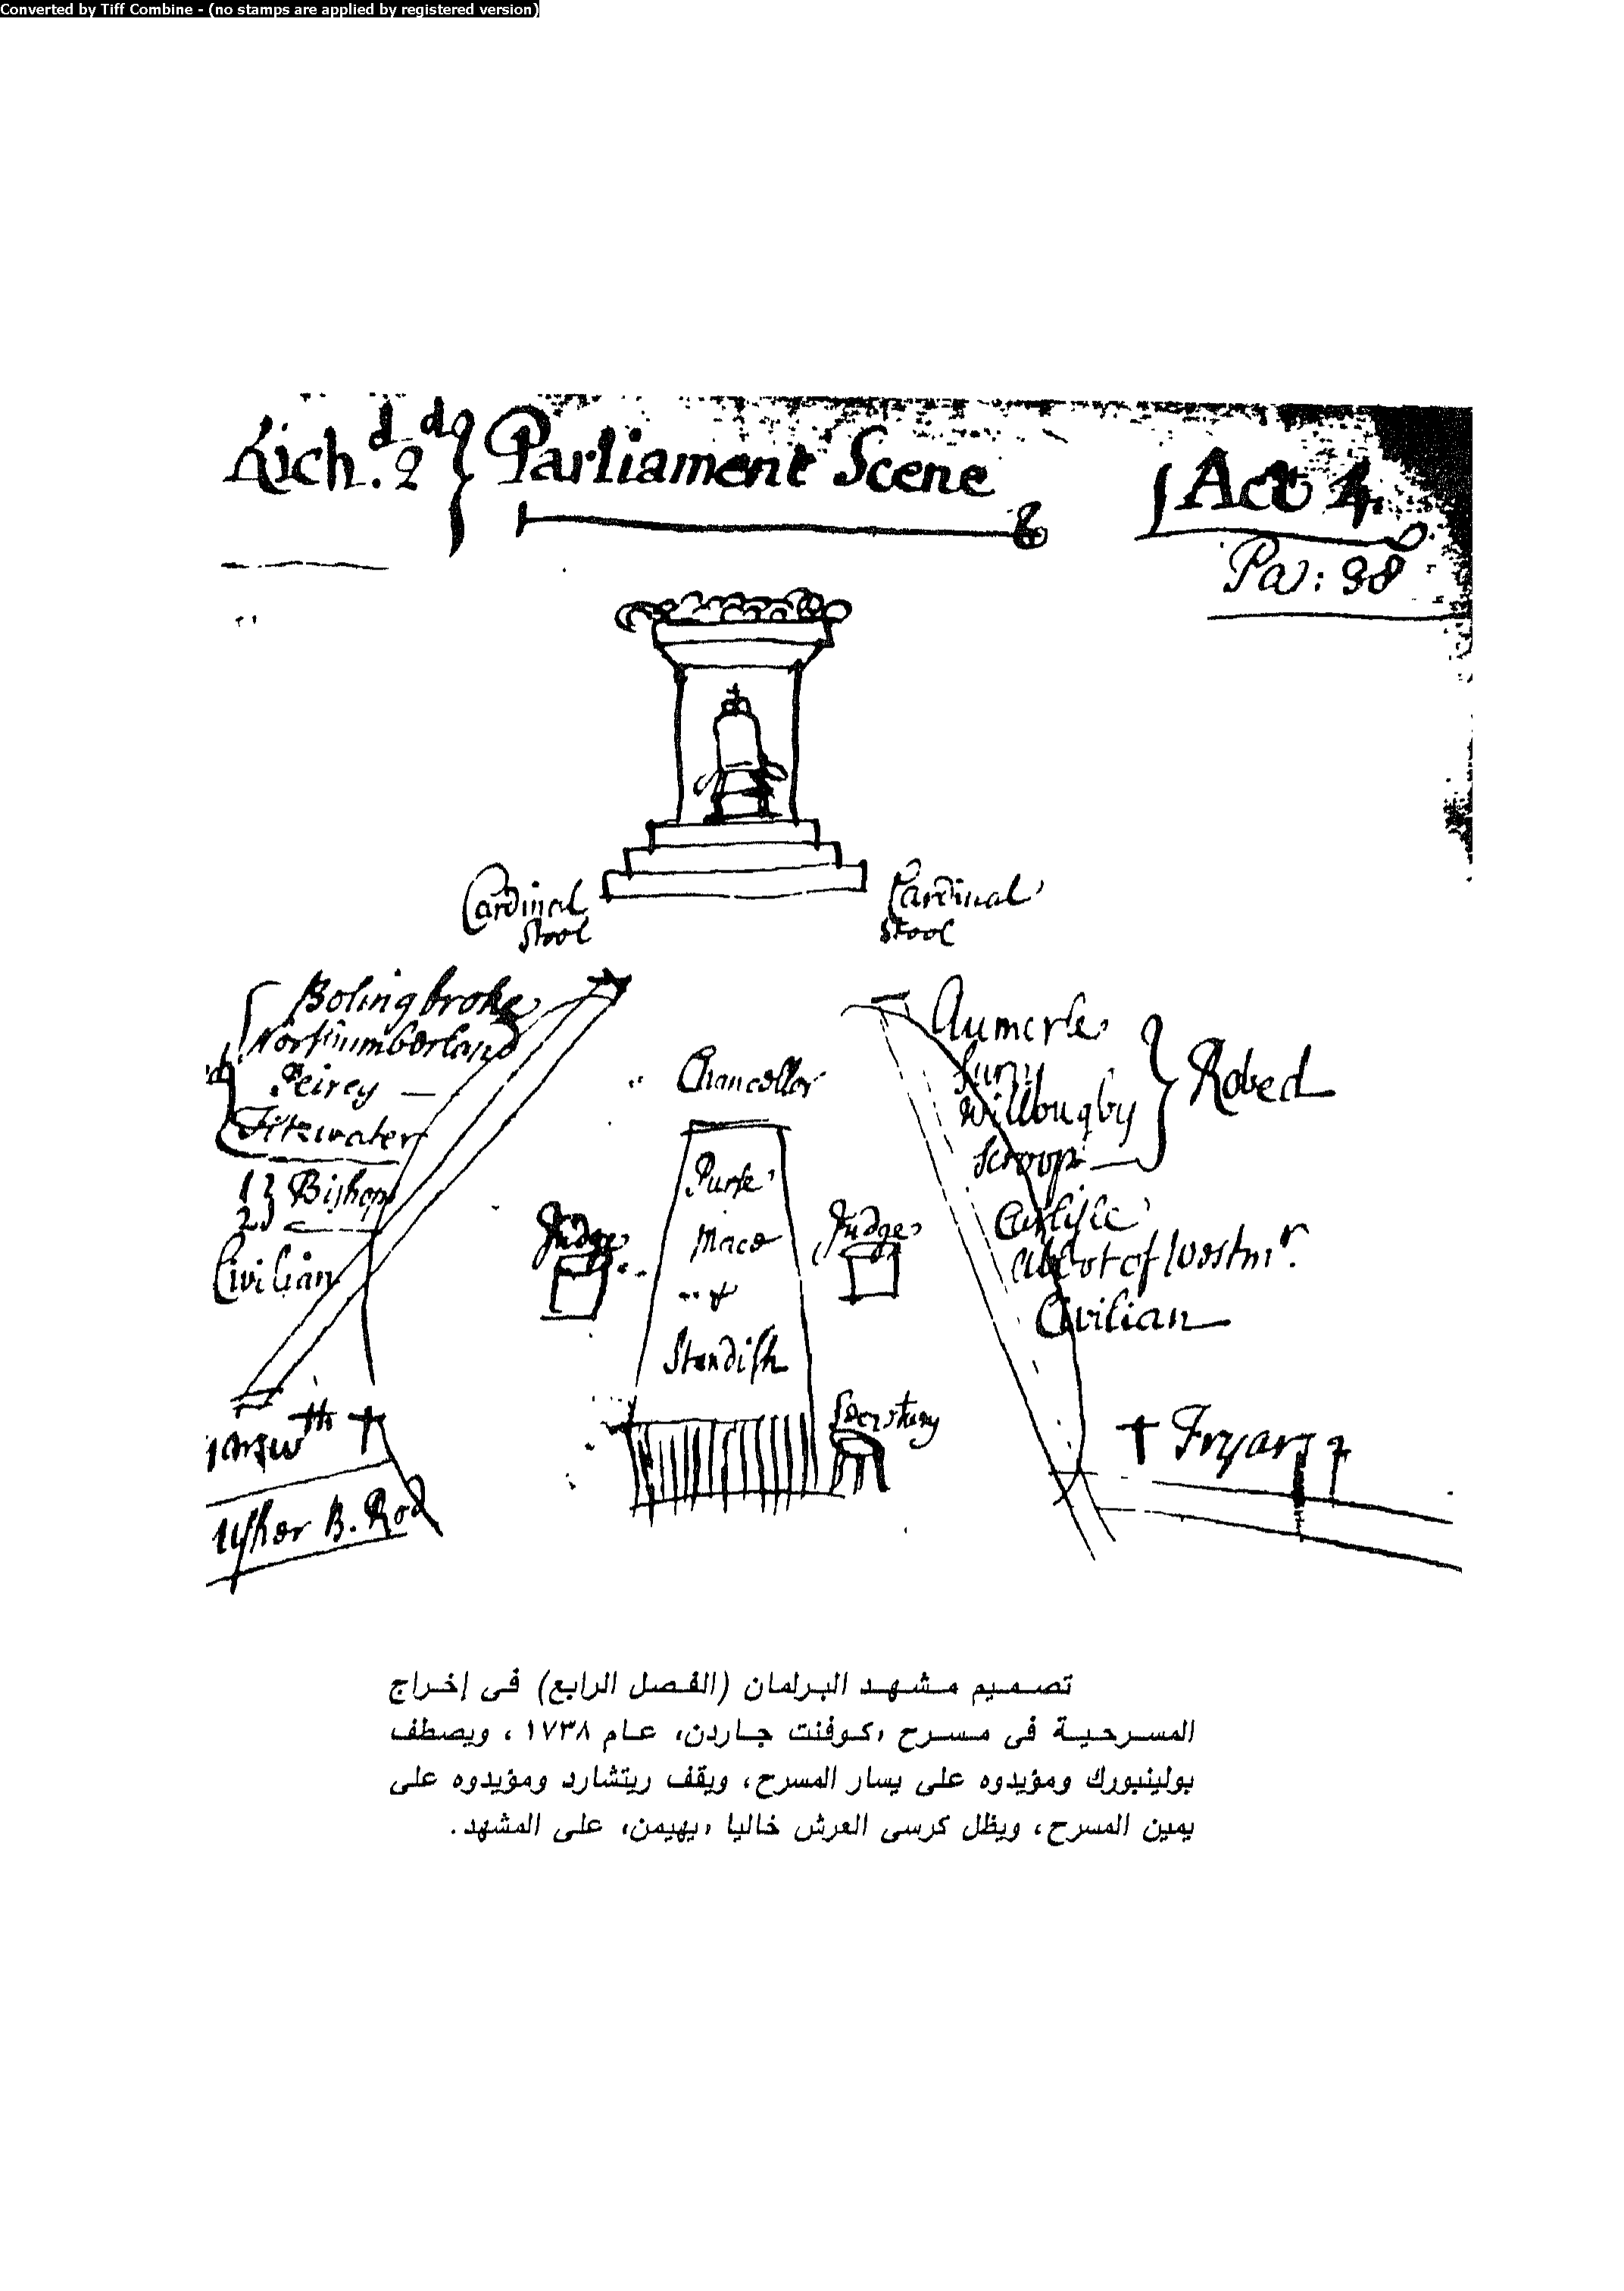 Converted by Tiff Combine - (no stamps are applied by registered version)
Rich.d 2d } Parliament Scene
Act 4.
Pa: 98
Cardinal
Stool
Cardinal
Stool
Bolingbroke
Northumberland
Peircy
Fitzwater
1 } Bishop
2 }
Civilian
Chancellor
Purse
Mace
&
Standish
Judge
Judge
Aumerle
Surry
Willougby
Scroop
Robed
Carlisle
Abbot of Westmr.
Civilian
Fryar
Usher B. Rod
تصميم مشهد البرلمان (الفصل الرابع) فى إخراج
المسرحية فى مسرح «كوفنت جاردن» عام ١٧٣٨ ، ويصطف
بولينبورك ومؤيدوه على يسار المسرح، ويقف ريتشارد ومؤيدوه على
يمين المسرح، ويظل كرسى العرش خاليا «يهيمن» على المشهد.